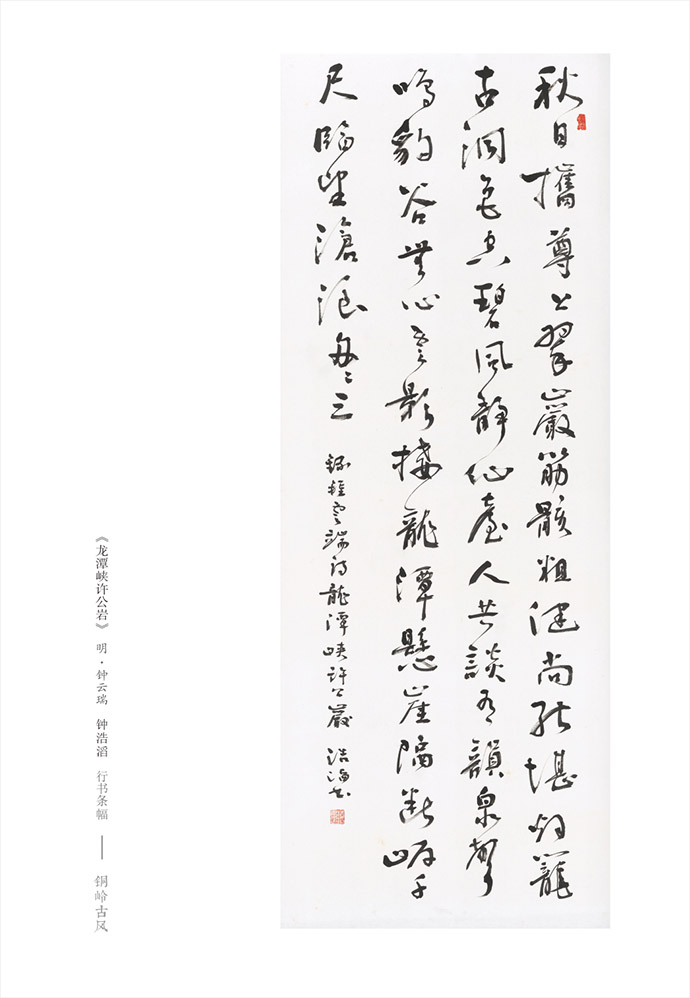 秋日攜尊上翠巖筋骸粗健尚能堪烟籠
古洞色空碧風靜仙臺人共談有韻泉聲
鳴豹谷無心雲影接龍潭懸崖隔斷千
尺臨望滄浪每二三
錄鍾雲瑞詩龍潭峽許公巖 浩滔書
《龙潭峡许公岩》 明·钟云瑞 钟浩滔 行书条幅 —— 铜岭古风